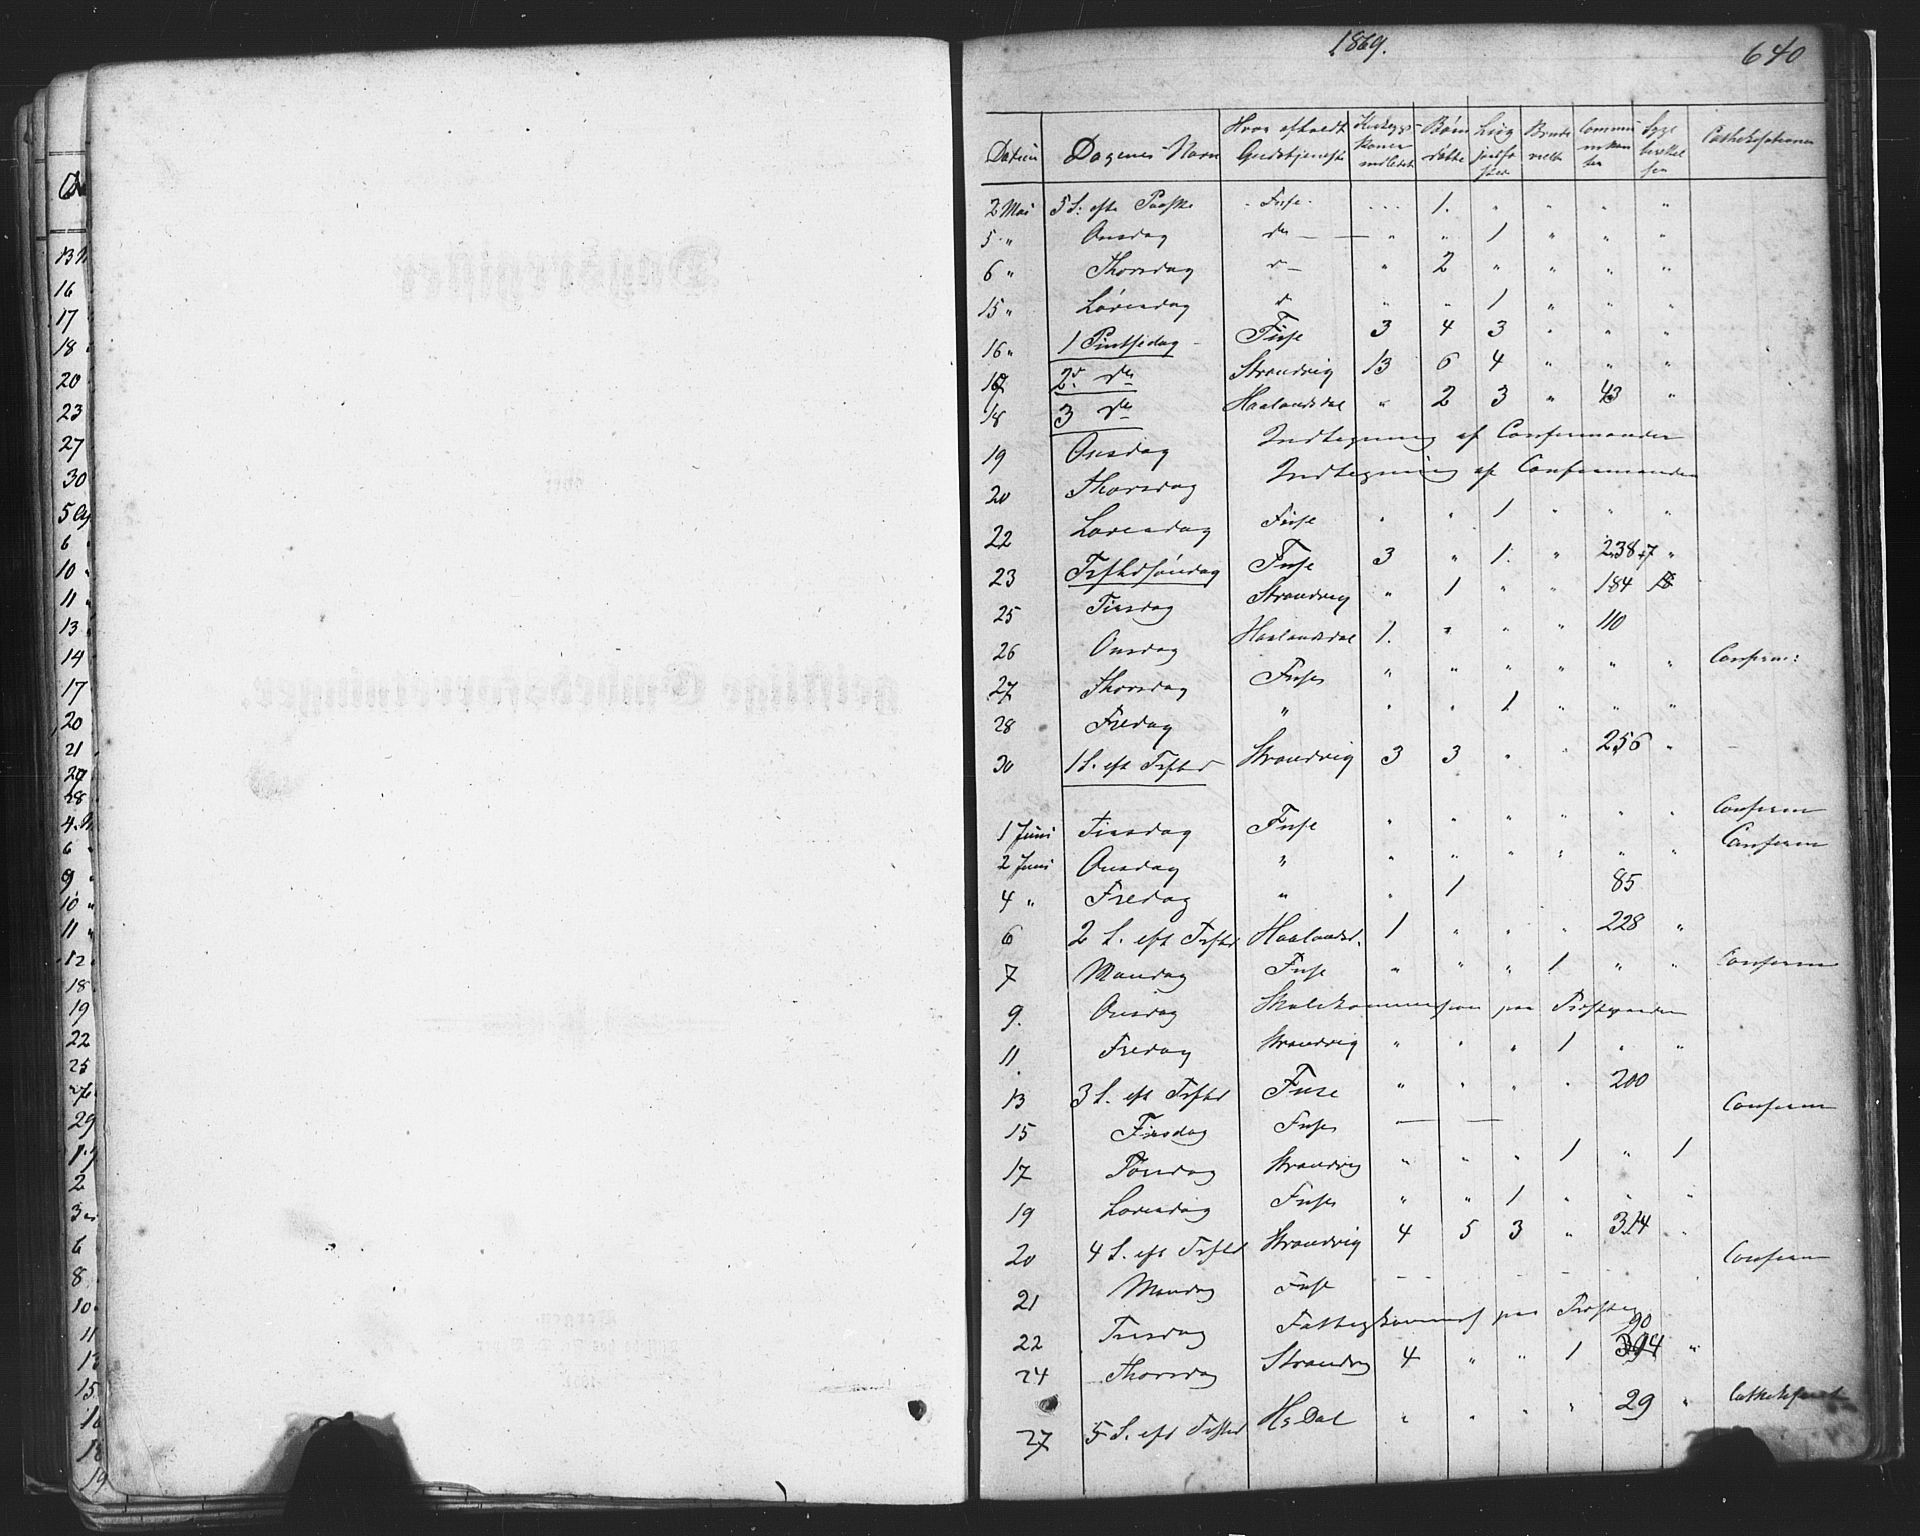 1869.
640
Datum | Dagenes Navn | Hvor afholdt Gudstjeneste | Kirkegangskoner indledet | Børn døbte | Liig jordfæstet | Brude viede | Communikanter | Syge berettelsen | Cathekisationer
2 Mai 5 S. efter Paaske - Fuse - . . . 1. " " " "
5 " Onsdag do — " " 1 " " "
6 " Thorsdag d — " 2 " " " "
15 " Løverdag d " " 1 " " "
16 " 1 Pintsedag - Fuse 3 4 3 " " "
17 2d do Strandvig 13 6 4 " " "
18 3 do Haalandsdal " 2 3 " 43 "
19 Onsdag Indtegning af Confirmander
20 Thorsdag Indtegning af Confirmander
22 Løverdag Fuse " " 1 " " "
23 Trfhdsøndag Fuse 3 " 1. " 238+7 "
25 Tirsdag Strandvig " 1 " " 184 18
26 Onsdag Haalandsdal 1. " " " 110
27 Thorsdag Fuse " " " " " " Confirm:
28 Fredag " " " 1 " " "
30 1 S. eft Trfhd Strandvig 3 3 " " 256 "
1 Juni Tirsdag Fuse " " " " " " Confirm
2 Juni Onsdag " " " " " " " Confirm
4 " Fredag " " 1 85
6 2 S. eft Trfhd Haalandsd. 1 " " " 228 "
7 Mandag Fuse " " " 1 " " Confirm
9. Onsdag Skolekommission paa Præstegaarden
11. Fredag Strandvig " " " 1 " "
13 3 S. eft Trfhd Fuse " " " " 200
15 Tirsdag Fuse — — Confirm
17 Torsdag Strandvig " " " 1 " 1
19 Løverdag Fuse " " 1 " " "
20 4 S. eft Trfhd Strandvig 4 5 3 " 314 "
21 Mandag Fuse Confirm
22 Tirsdag Fattigkommis paa Præsteg
24 Thorsdag Strandvig 4 " " 1 90 394 "
27 5 S. eft Trfhd HsDal " " " " 29 "
13
16
17
18
20
23
27
30
5
6
10
11
13
14
17
20
21
27
28
4
6
9
10 "
11 "
12
18
19
22
25
29
2
3
6
8
10
11
13
15
16
18
19